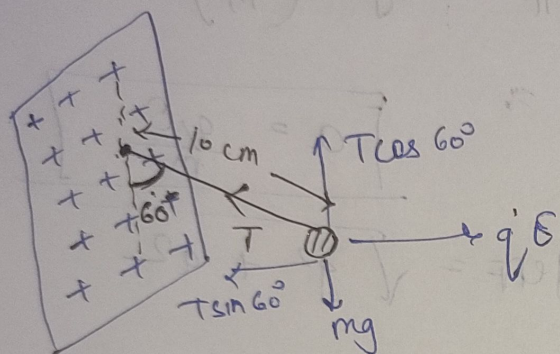 10 cm
T cos 60°
60°
T
qE
T sin 60°
mg